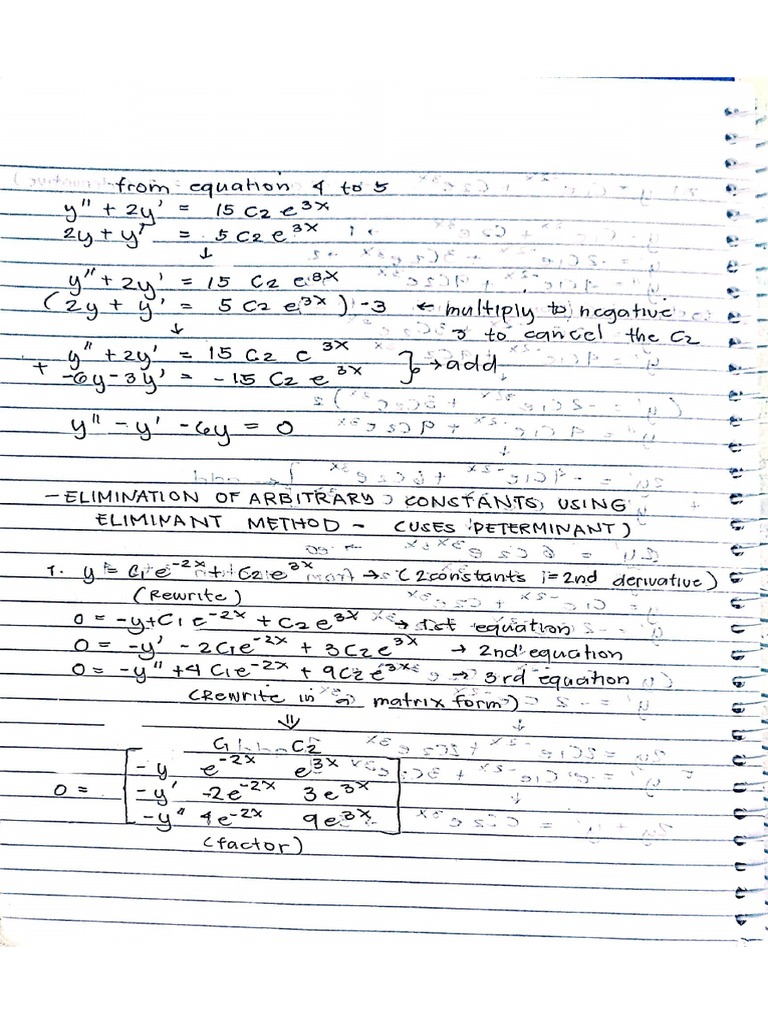 from equation 4 to 5
y" + 2y' = 15 C2 e^3x
2y + y' = 5 C2 e^3x
↓
y" + 2y' = 15 C2 e^3x
(2y + y' = 5 C2 e^3x) -3 ← multiply to negative
3 to cancel the C2
↓
y" + 2y' = 15 C2 e^3x
+ -6y - 3y' = -15 C2 e^3x } → add
y" - y' - 6y = 0
- ELIMINATION OF ARBITRARY CONSTANTS USING
ELIMINANT METHOD - (USES DETERMINANT)
1. y = C1e^-2x + C2e^3x → (2 constants = 2nd derivative)
(Rewrite)
0 = -y + C1e^-2x + C2e^3x → 1st equation
0 = -y' - 2C1e^-2x + 3C2e^3x → 2nd equation
0 = -y" + 4C1e^-2x + 9C2e^3x → 3rd equation
(Rewrite in a matrix form)
⇓
C1 C2
-y e^-2x e^3x
0 = -y' -2e^-2x 3e^3x
-y" 4e^-2x 9e^3x
(factor)